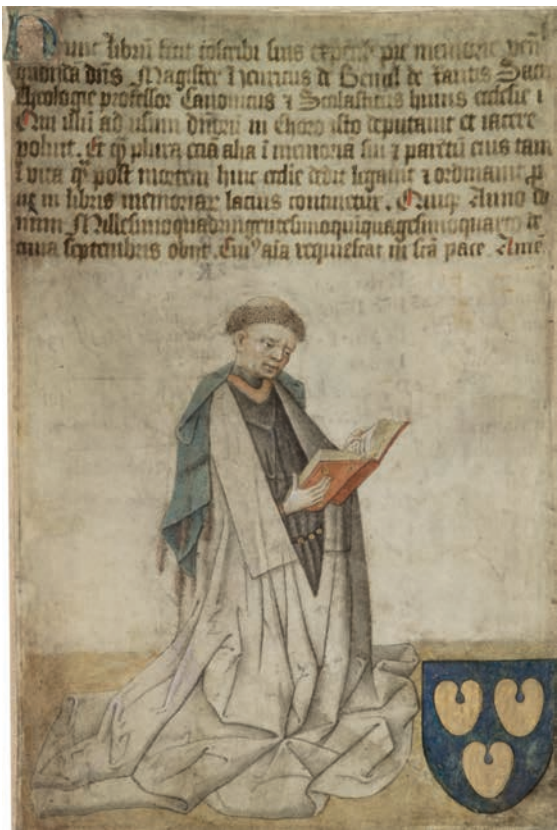 Hunc librū fecit cōscribi suis expensis pie memorie ven
quōdā dn̄s Magister Henricus de
theologie professor Canonicus ⁊ Scolasticus huius ecclesie
Qui illū ad usum in choro isto deputavit et iacere
voluit. Et qȝ plura eciā alia ī memoriā sui ⁊ parētū eius tam
ī vita qȝ post mortem huic ecclīe dedit legavit ⁊ ordinavit
in libris memoriarꝫ lacius continetur. Anno do
mini Millesimoquadringentesimoquīquagesimoquarto
septembris obiit. Cuiꝰ aīa requiescat in scā pace. Amē